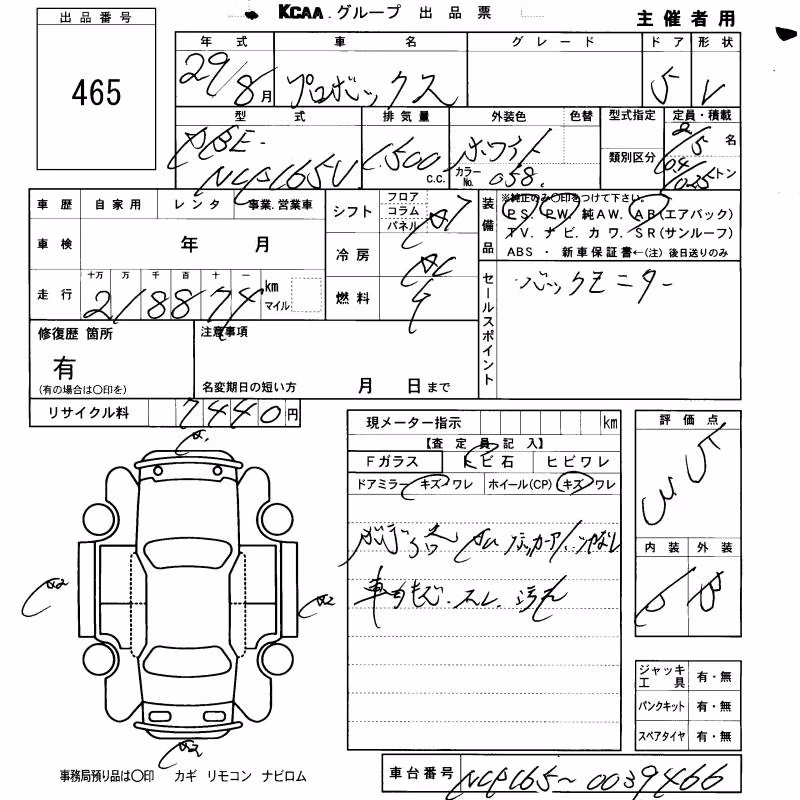 KCAA.グループ 出品票
主催者用
出品番号
465
年式 車名 グレード ドア 形状
29/8月 プロボックス 5 V
型式 排気量 外装色 色替 型式指定 定員・積載
DBE- 1,500 c.c. ホワイト 2/5名
NCP165V カラーNo. 058. 類別区分 0.4/0.25トン
車歴 自家用 レンタ 事業.営業車
シフト フロア コラム パネル AT
装備品 ※純正のみ〇印をつけて下さい。
PS. PW. 純AW. AB(エアバック)
TV. ナビ. カワ. SR(サンルーフ)
ABS ・ 新車保証書←(注) 後日送りのみ
車検 年 月
冷房 AC
走行 十万 万 千 百 十 一
218874 km マイル
燃料 ガ
セールスポイント バックモニター
修復歴 箇所
有
(有の場合は〇印を)
注意事項
名変期日の短い方 月 日まで
リサイクル料 7440円
現メーター指示 km
【査定員記入】
Fガラス トビ石 ヒビワレ
ドアミラー キズ・ワレ ホイール(CP) キズ・ワレ
車内キズ.スレ.汚れ
評価点
内装 外装
A1
A2
A2
A2
ジャッキ工具 有・無
パンクキット 有・無
スペアタイヤ 有・無
事務局預り品は〇印 カギ リモコン ナビロム
車台番号 NCP165~0039466